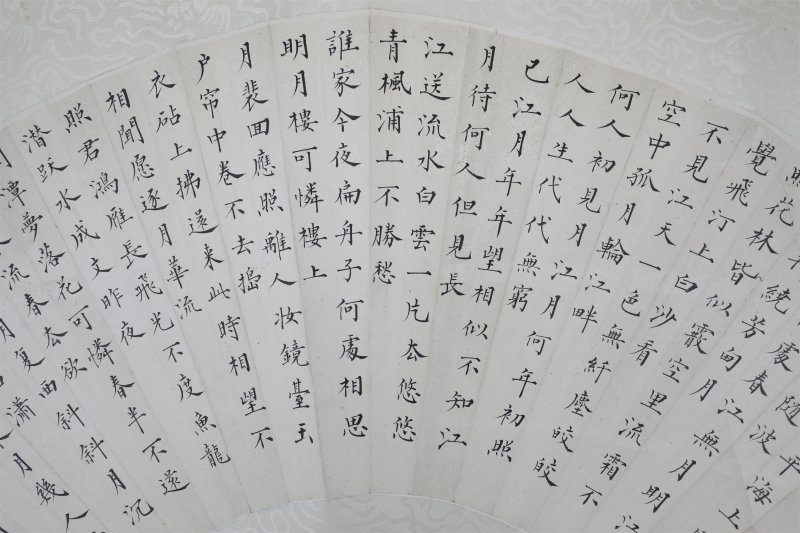 平海上
隨波
處春江無月明江
繞芳甸月
照花林皆似霰空里流霜不
覺飛汀上白沙看
不見江天一色無纤塵皎皎
空中孤月輪江畔
何人初見月江月何年初照
人人生代代無窮
已江月年年望相似不知江
月待何人但見長
江送流水白雲一片去悠悠
青楓浦上不勝愁
誰家今夜扁舟子何處相思
明月樓可憐樓上
月裴回應照離人妝鏡臺玉
户帘中卷不去搗
衣砧上拂還來此時相望不
相聞愿逐月華流
照君鴻雁長飛光不度魚龍
潜跃水成文昨夜
潭夢落花可憐春半不還
流春去欲
月复西斜斜月沉
瀟
月幾人